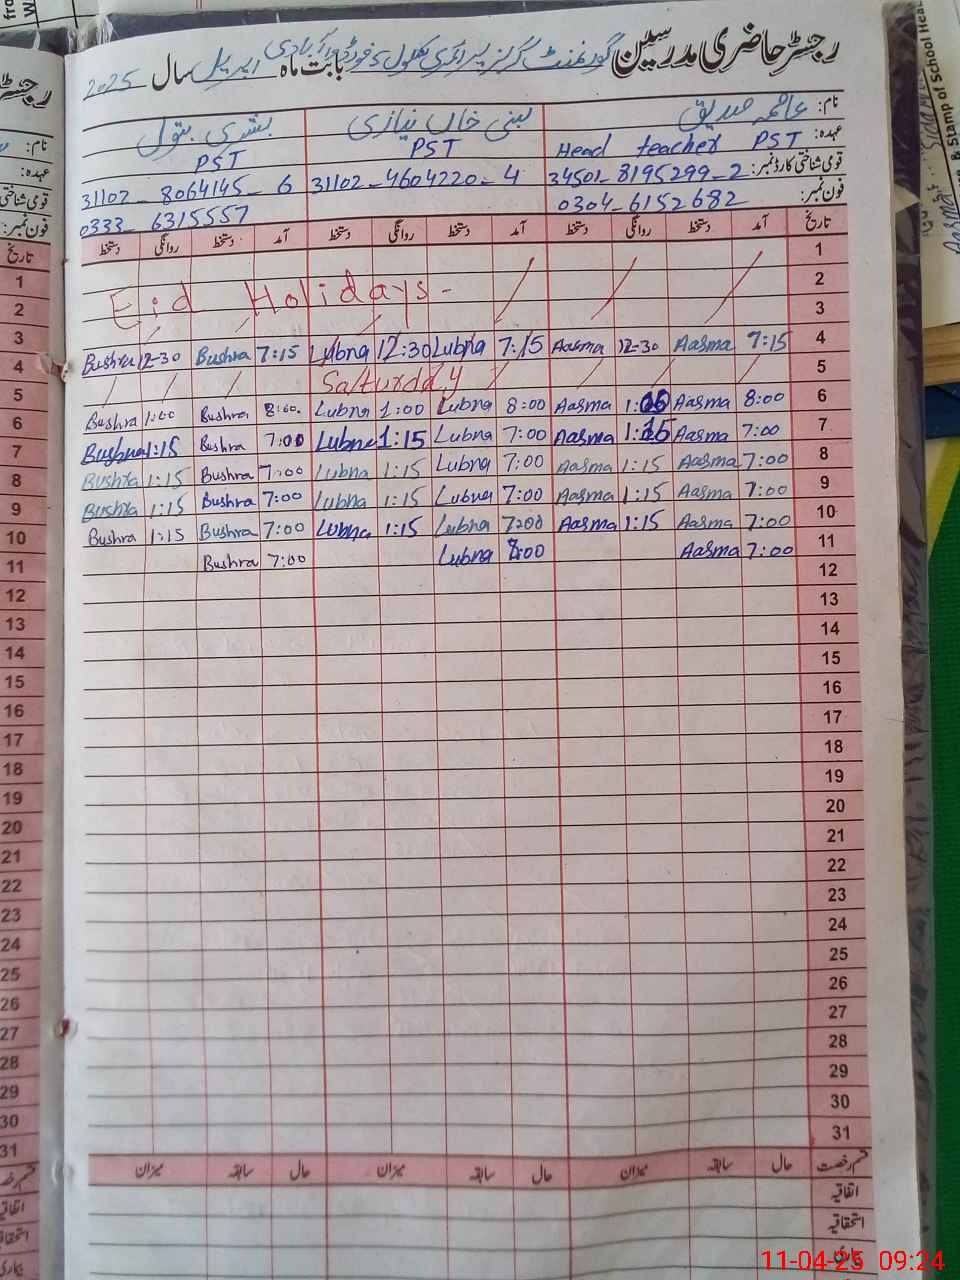 رجسٹر حاضری مدرسین گورنمنٹ گرلز پرائمری سکول بابت ماہ اپریل سال 2025
نام: عاصمہ صدیق لبنیٰ خان نیازی بشریٰ بتول
عہدہ: Head teacher PST PST PST
قومی شناختی کارڈ نمبر: 34501-8195299-2 31102-4604220-4 31102-8064145-6
فون نمبر: 0304-6152682 0333-6315557
تاریخ آمد دستخط روانگی دستخط آمد دستخط روانگی دستخط آمد دستخط روانگی دستخط
1
Eid Holidays- 2
3
Bushra 12-30 Bushra 7:15 Lubna 12:30 Lubna 7:15 Aasma 12-30 Aasma 7:15 4
Saturday 5
Bushra 1:00 Bushra 8:00 Lubna 1:00 Lubna 8:00 Aasma Aasma 8:00 6
Bushra 1:15 Bushra 7:00 Lubna 1:15 Lubna 7:00 Aasma Aasma 7:00 7
Bushra 1:15 Bushra 7:00 Lubna 1:15 Lubna 7:00 Aasma 1:15 Aasma 7:00 8
Bushra 1:15 Bushra 7:00 Lubna 1:15 Lubna 7:00 Aasma 1:15 Aasma 7:00 9
Bushra 1:15 Bushra 7:00 Lubna 1:15 Lubna 7:00 Aasma 1:15 Aasma 7:00 10
Bushra 7:00 Lubna Aasma 7:00 11
12
13
14
15
16
17
18
19
20
21
22
23
24
25
26
27
28
29
30
31
قسم رخصت حال سابقہ میزان حال سابقہ میزان حال سابقہ میزان
اتفاقیہ
استحقاقیہ
بیماری
11-04-25 09:24
رجسٹر
نام:
عہدہ:
قومی شناختی
فون نمبر:
تاریخ
1
2
3
4
5
6
7
8
9
10
11
12
13
14
15
16
17
18
19
20
21
22
23
24
25
26
27
28
29
30
31
اتفاقیہ
بیماری
& Stamp of School Hea
Aasma